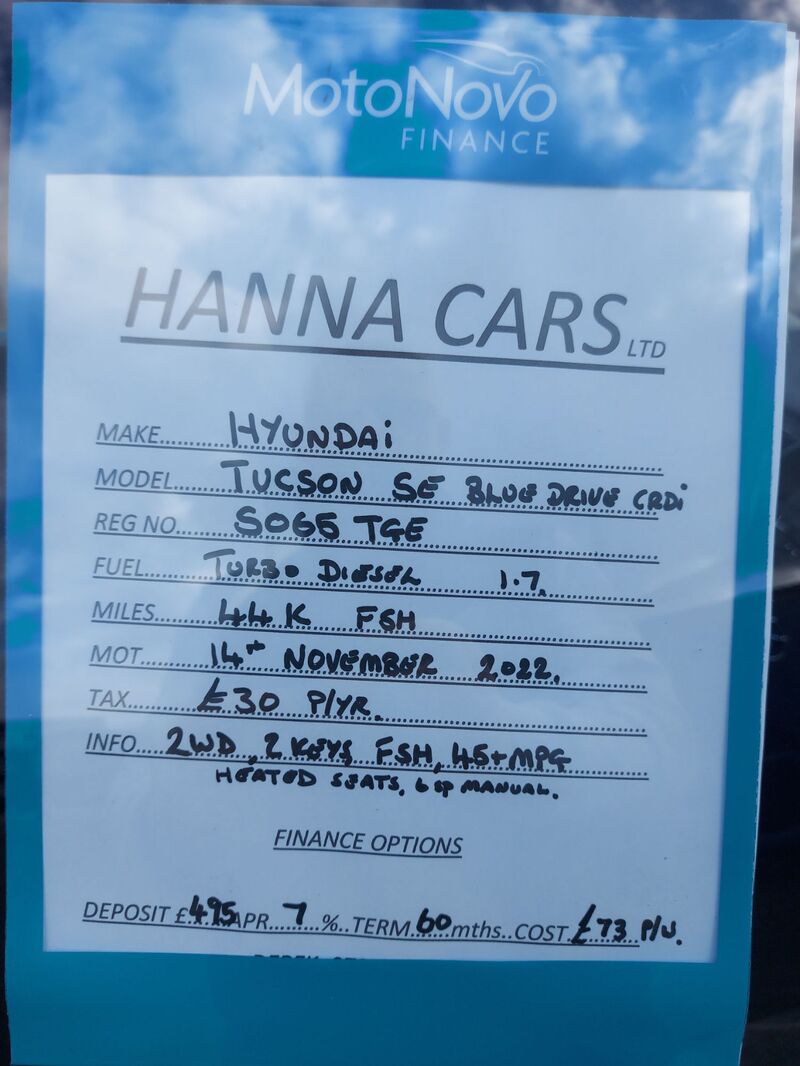 MotoNovo
FINANCE
HANNA CARS LTD
MAKE.......... HYUNDAi
MODEL....... TUCSON SE BLUE DRIVE CRDi
REG NO...... SO65 TGE
FUEL........... TURBO DIESEL 1.7.
MILES.......... 44K FSH
MOT........... 14th NOVEMBER 2022.
TAX............. £30 P/YR.
INFO.... 2WD, 2 KEYS FSH, 45+MPG
HEATED SEATS, 6 sp MANUAL.
FINANCE OPTIONS
DEPOSIT £ 495 APR 7 %.. TERM 60 mths.. COST £73 P/W.